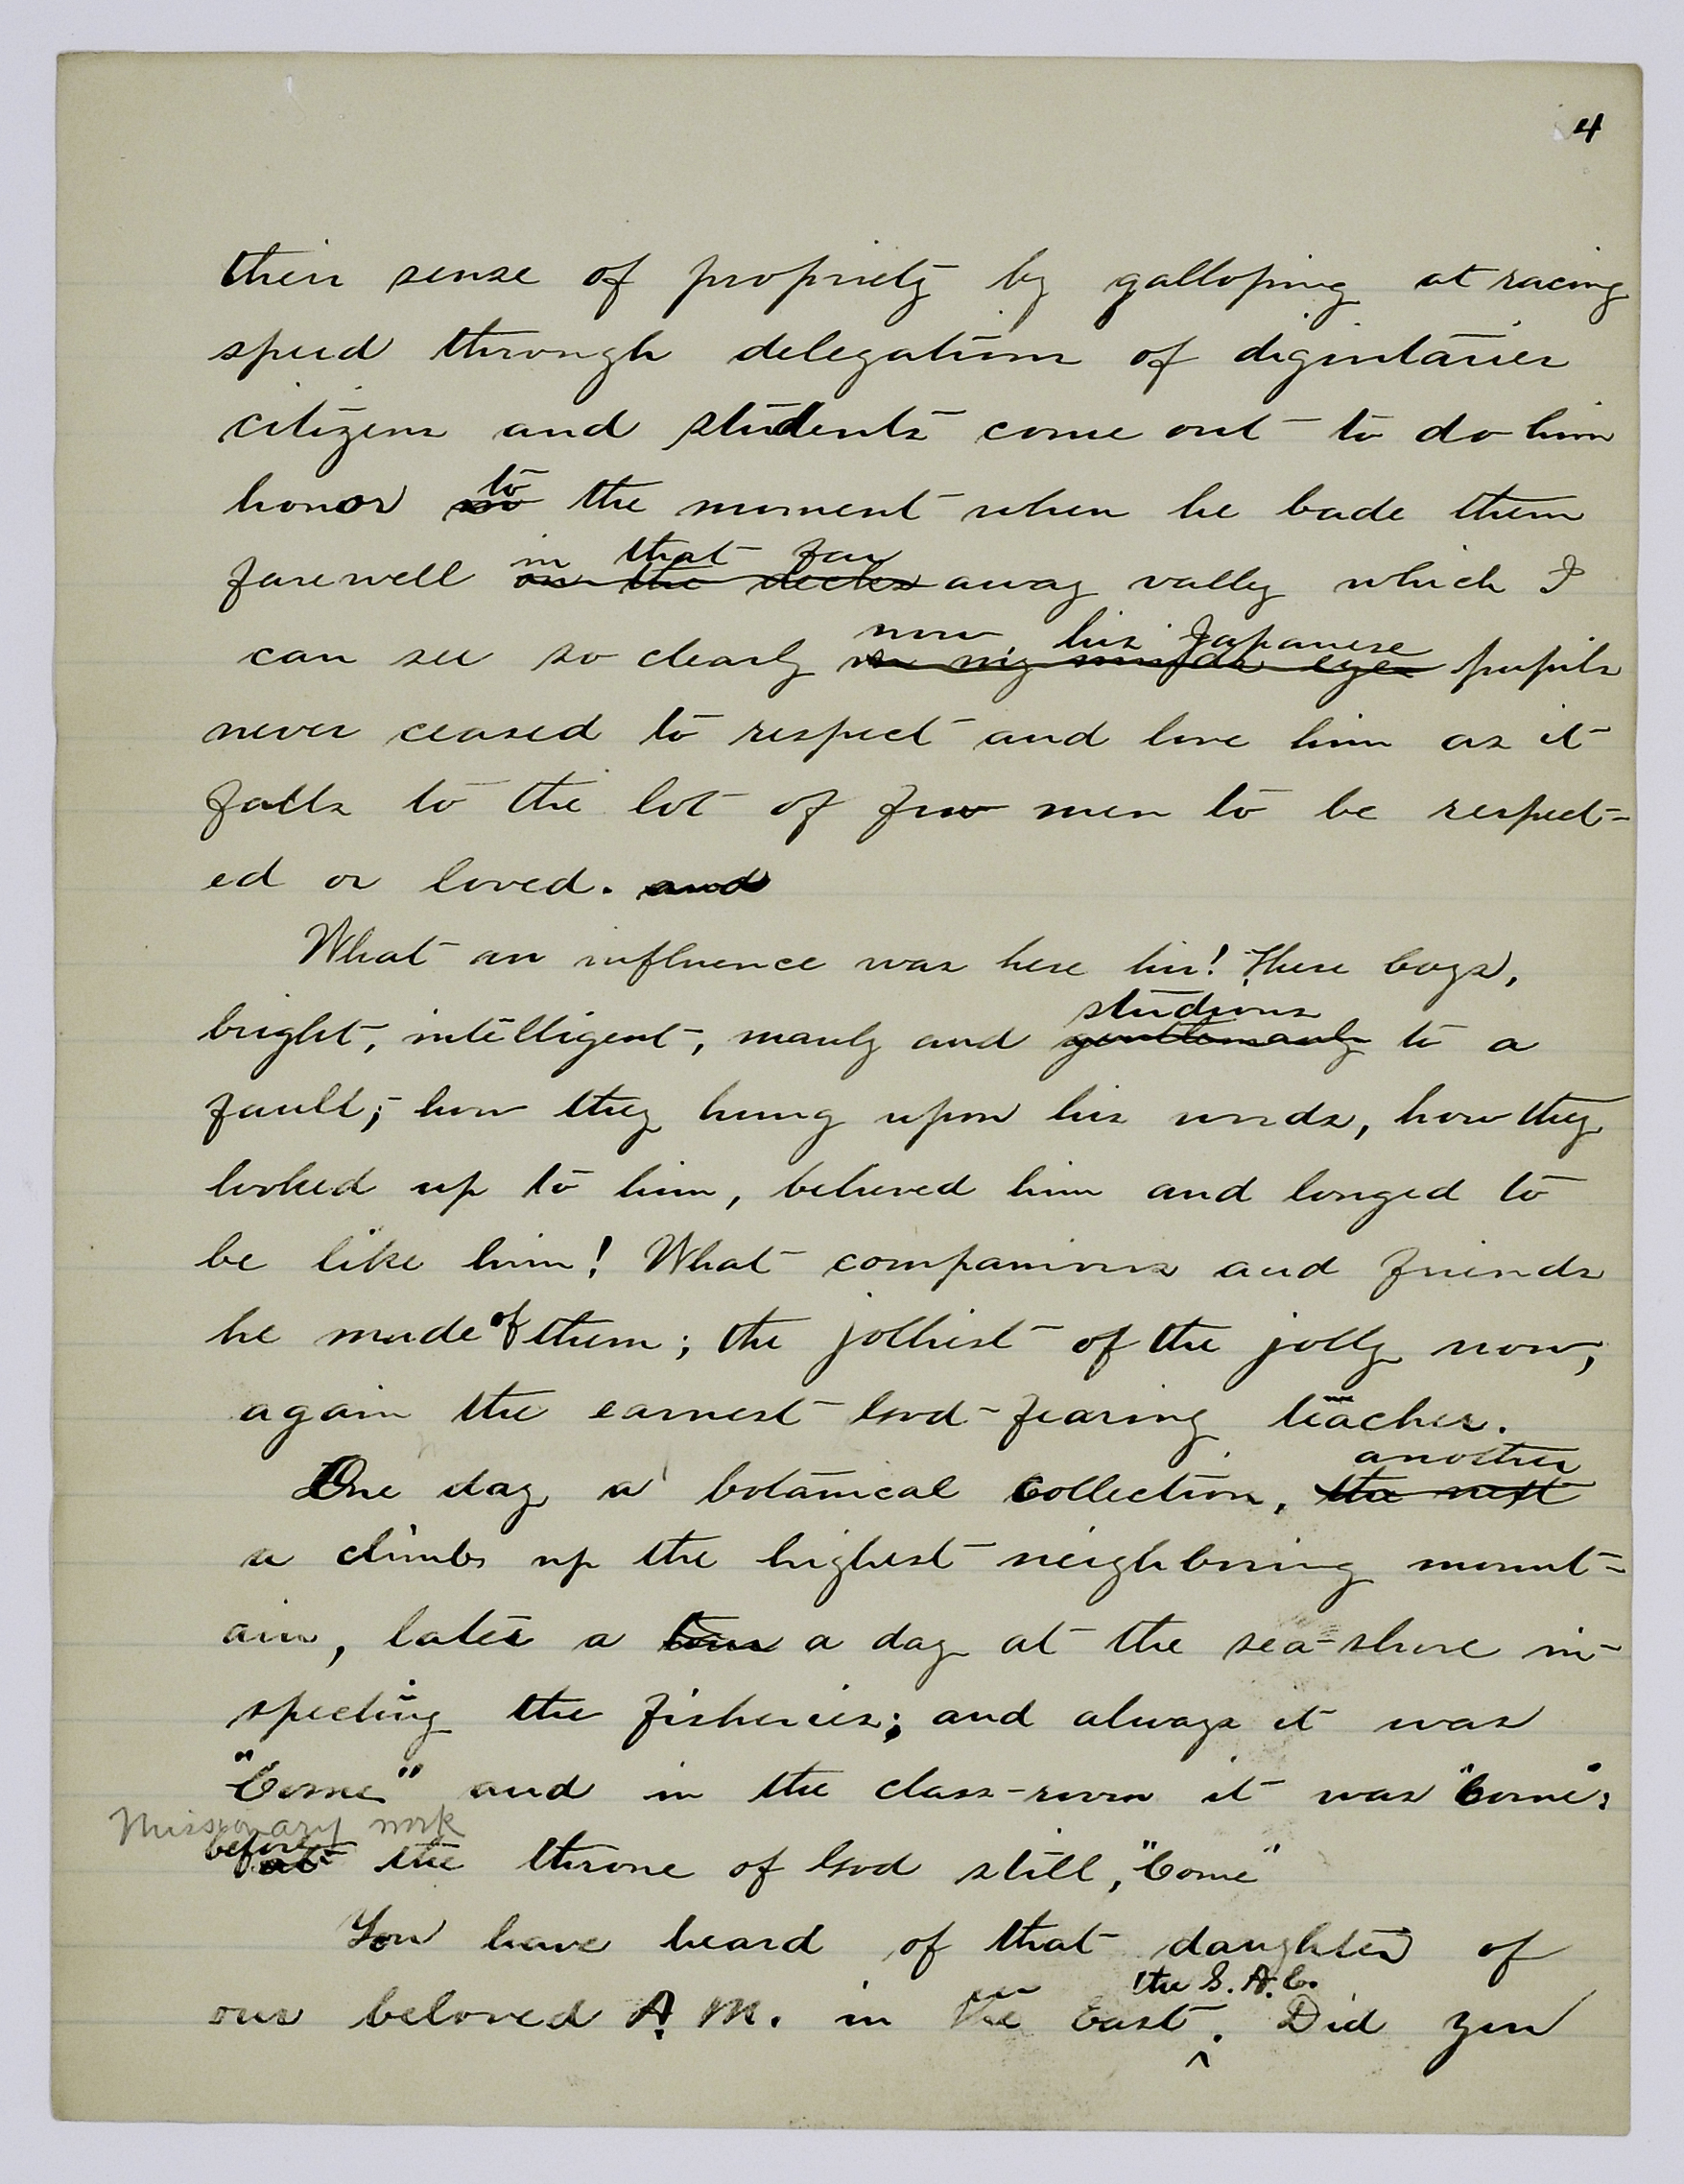 4
their sense of propriety by galloping at racing
speed through delegations of diginitaries
citizens and students come out to do him
honor so to the moment when he bade them
in that far
farewell on the decks away vally which I
now, his Japanese
can see so clearly in my minds eye pupils
never ceased to respect and love him as it
falls to the lot of few men to be respect-
ed or loved. and
What an influence was here his! These boys,
studious
bright, intelligent, manly and gentlemanly to a
fault; how they hung upon his words, how they
looked up to him, believed him and longed to
be like him! What companions and friends
he made of them; the jolliest of the jolly now,
again the earnest God-fearing teacher.
another
One day a botanical collection, the next
a climb up the highest neighboring mount-
ain, later a a day at the sea-shore in-
specting the fisheries; and always it was
"Come" and in the class-room it was "Come";
Missionary work
before at the throne of God still, "Come"
You have heard of that daughter of
the S.A.C.
our beloved A. M. in the East. Did you
^